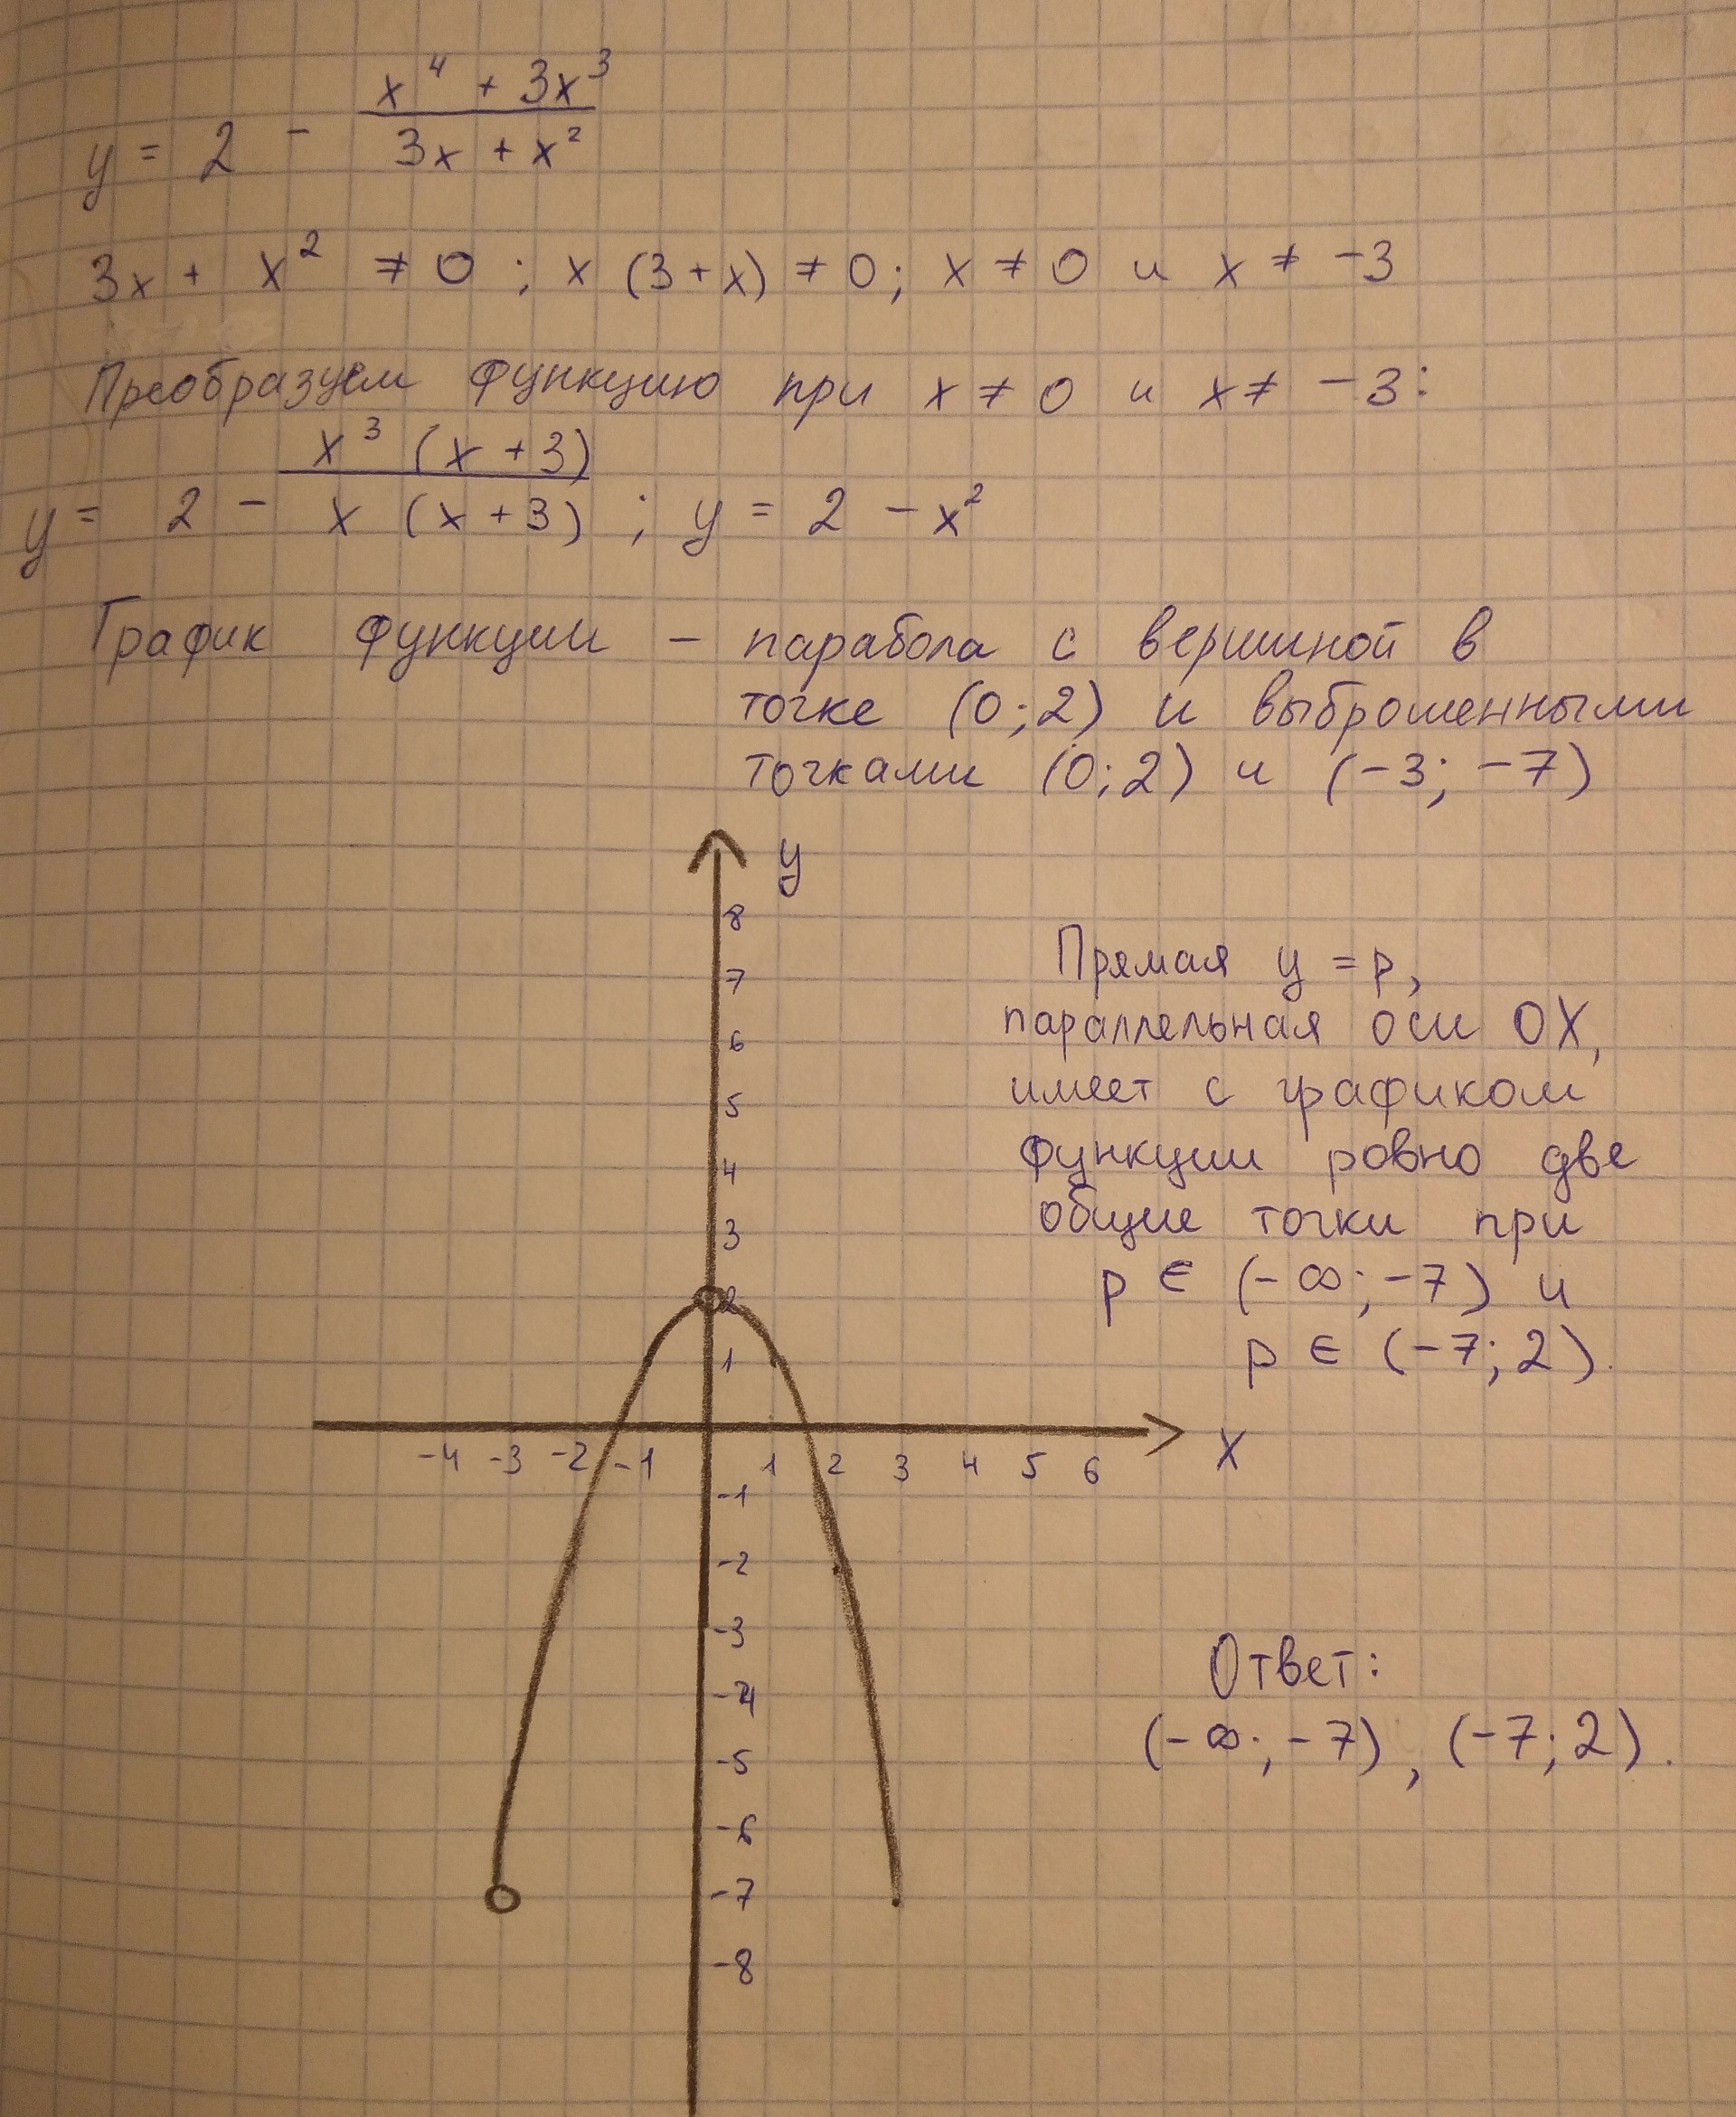 y = 2 - (x⁴ + 3x³)/(3x + x²)
3x + x² ≠ 0 ; x (3+x) ≠ 0; x ≠ 0 и x ≠ -3
Преобразуем функцию при x ≠ 0 и x ≠ -3:
y = 2 - (x³ (x+3))/(x (x+3)) ; y = 2 - x²
График функции - парабола с вершиной в
точке (0;2) и выброшенными
точками (0;2) и (-3; -7)
y
8
7
6
5
4
3
2
1
Прямая y = p,
параллельная оси OX,
имеет с графиком
функции ровно две
общие точки при
p ∈ (-∞; -7) и
p ∈ (-7; 2).
-4 -3 -2 -1 1 2 3 4 5 6 X
-1
-2
-3
-4
-5
-6
-7
-8
Ответ:
(-∞; -7), (-7; 2).